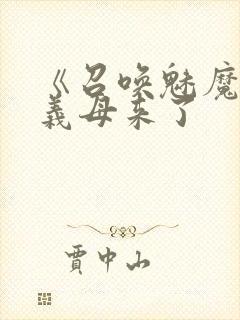 《召唤魅魔
義母来了
賈中山